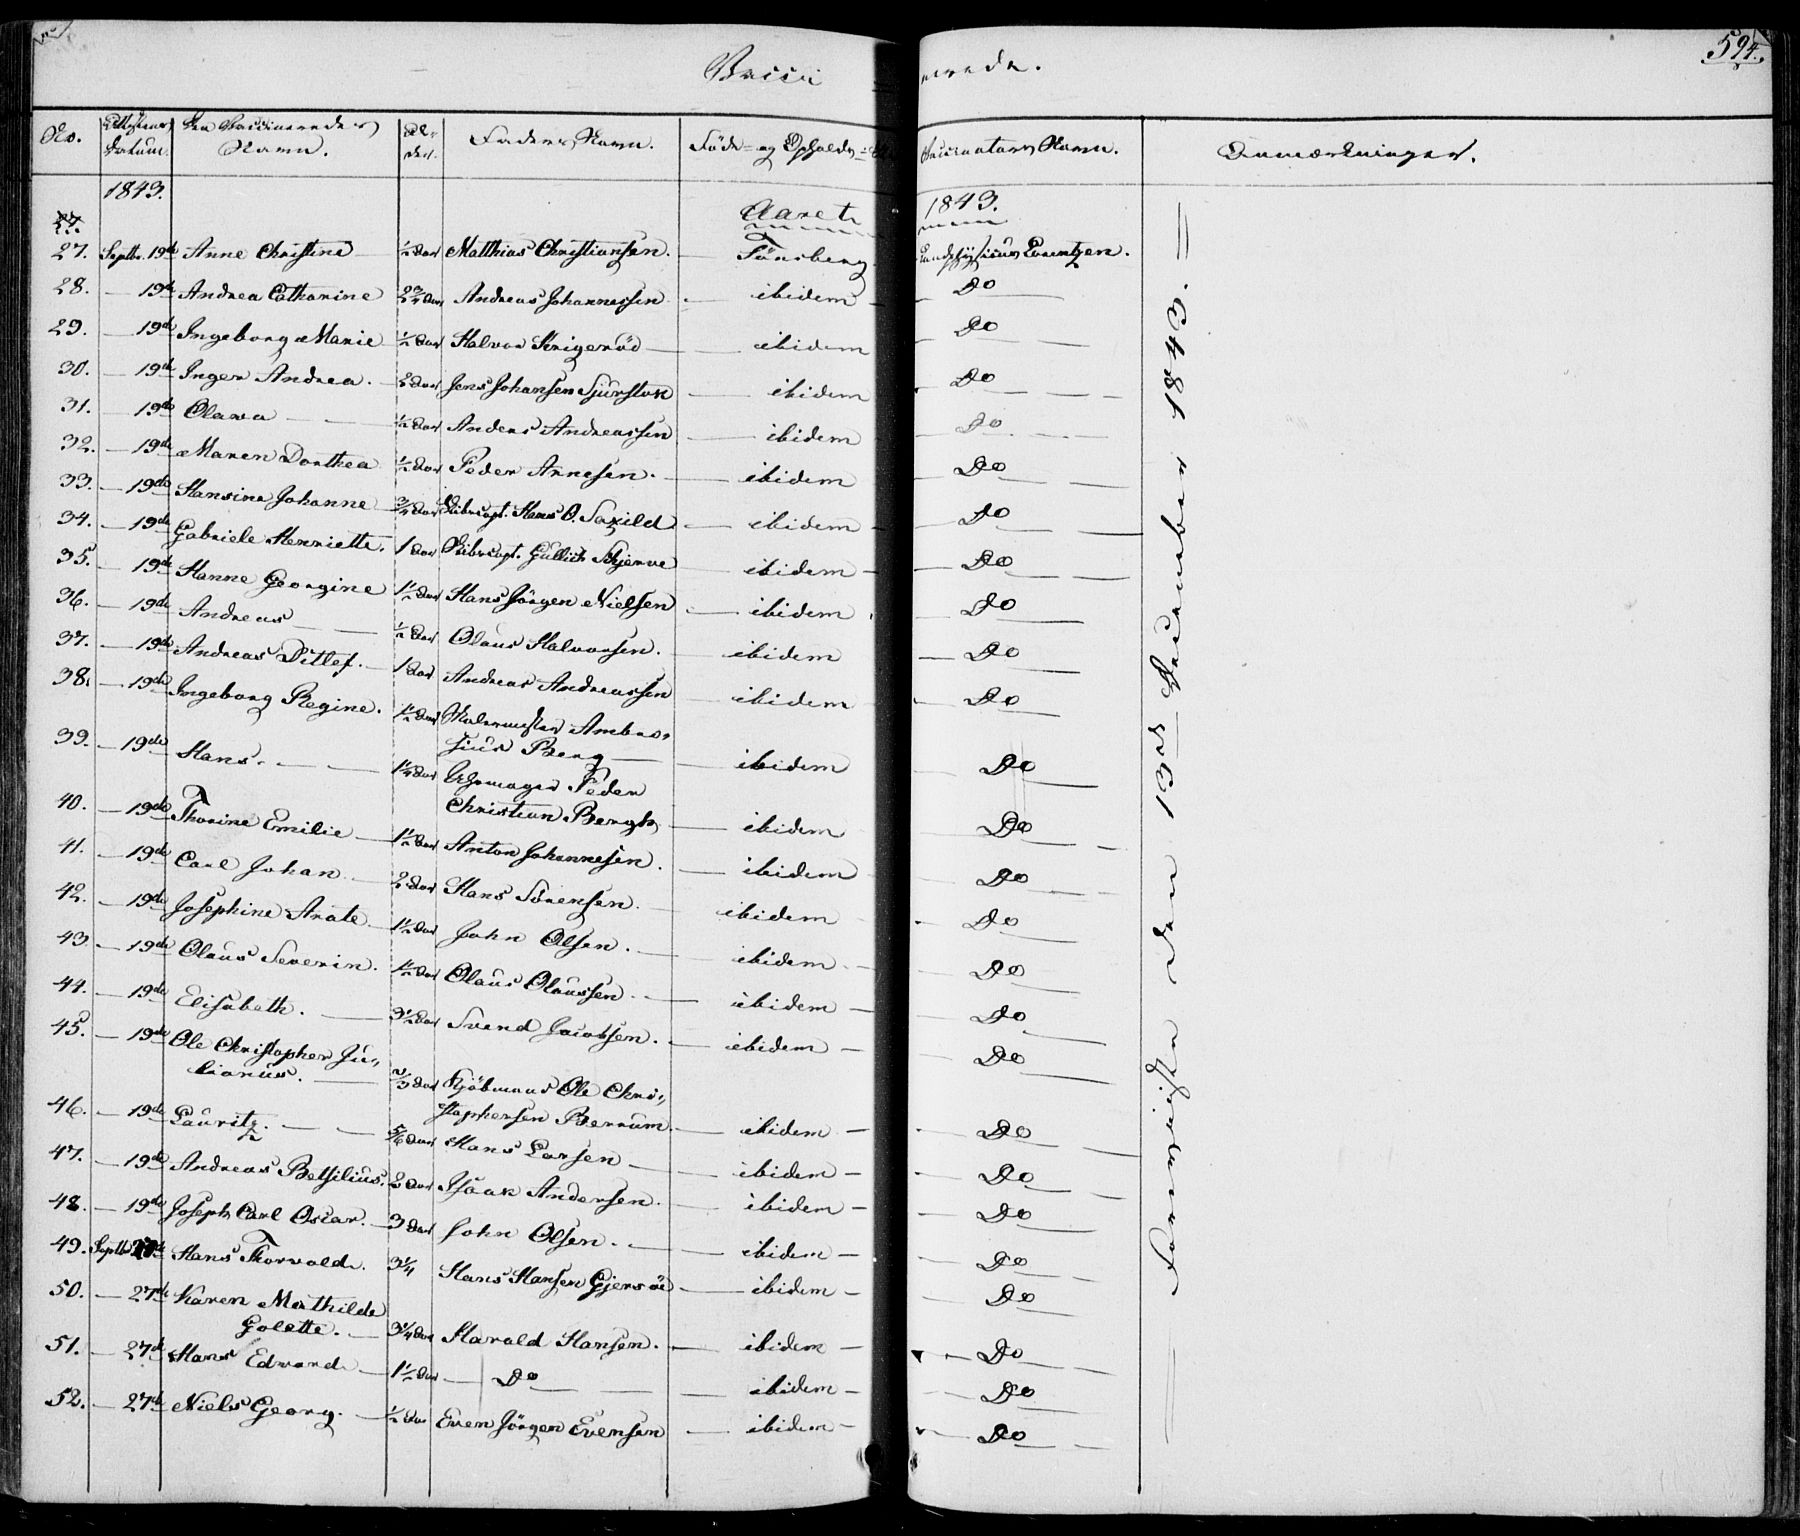 Vacci nerede. 594.
No. Attestens Datum. De Vaccineredes Navn. Al- der. Faders Navn. Föde- og Opholds- Vaccinateurs Navn. Anmærkninger.
1843. Aaret 1843.
27.
27. Septbr. 19de Anne Christine ½ Aar Matthias Christiansen. Tönsberg Landphysicus Lorentzen.
28. — 19de Andrea Catharine 2¾ Aar Andreas Johannessen — ibidem — Do
29. — 19de Ingeborg Marie ½ Aar Halvor Krigeröd — ibidem Do
30. — 19de Inger Andrea. 2 Aar Jens Johansen Sjurstok — ibidem Do
31. — 19de Olava — ½ Aar Anders Andreassen — ibidem Do
32. — 19de Maren Dorthea ½ Aar Peder Arnesen. — ibidem Do
33. — 19de Hansine Johanne ¾ Aar Skibscapt. Hans O. Saxild — ibidem — Do
34. — 19de Gabriele Henriette. 1 Aar Skibscapt. Gullich Skjerve — ibidem — Do
35. — 19de Hanne Georgine 1½ Aar Hans Jörgen Nielsen — ibidem Do
36. — 19de Andreas — ½ Aar Olaus Halvorsen. — ibidem Do
37. — 19de Andreas Ditlef. — 1 Aar Andreas Andreassen — ibidem Do
38. — 19de Ingeborg Regine. 1½ Aar Malermester Ambro-
sius Berg — ibidem Do
39. — 19de Hans. — 1¼ Aar Uhrmager Peder
Christian Bergh — ibidem Do
40. — 19de Thorine Emilie — 1½ Aar Anton Johannesen. — ibidem Do
41. — 19de Carl Johan. — 2 Aar Hans Sörensen. — ibidem Do
42. — 19de Josephine Arate 1½ Aar John Olsen. — ibidem Do
43. — 19de Olaus Severin. 1½ Aar Olaus Olaussen. — ibidem — Do
44. — 19de Elisabeth. — 3½ Aar Svend Jacobsen. — ibidem — Do
45. — 19de Ole Christopher Ju-
lianus. — ⅔ Aar Kjöbmand Ole Chri-
stophersen Berrum. — ibidem — Do
46. — 19de Lauritz. — 5/6 Aar Hans Larsen — ibidem — Do
47. — 19de Andreas Betsilius. 2 Aar Isaak Andersen. — ibidem — Do
48. — 19de Joseph Carl Oscar. — 3 Aar John Olsen. — ibidem — Do
49. Septbr. Hans Thorvald. 3¼ Hans Hansen Gjersöe — ibidem — Do
50. — 27de Karen Mathilde
Golette. — 3¼ Aar Harald Hansen. — ibidem — Do
51. — 27de Hans Edvard. — 1½ Aar — Do — ibidem — Do
52. — 27de Niels Georg. — ½ Aar Even Jörgen Evensen — ibidem — Do
den 13de December 1843.